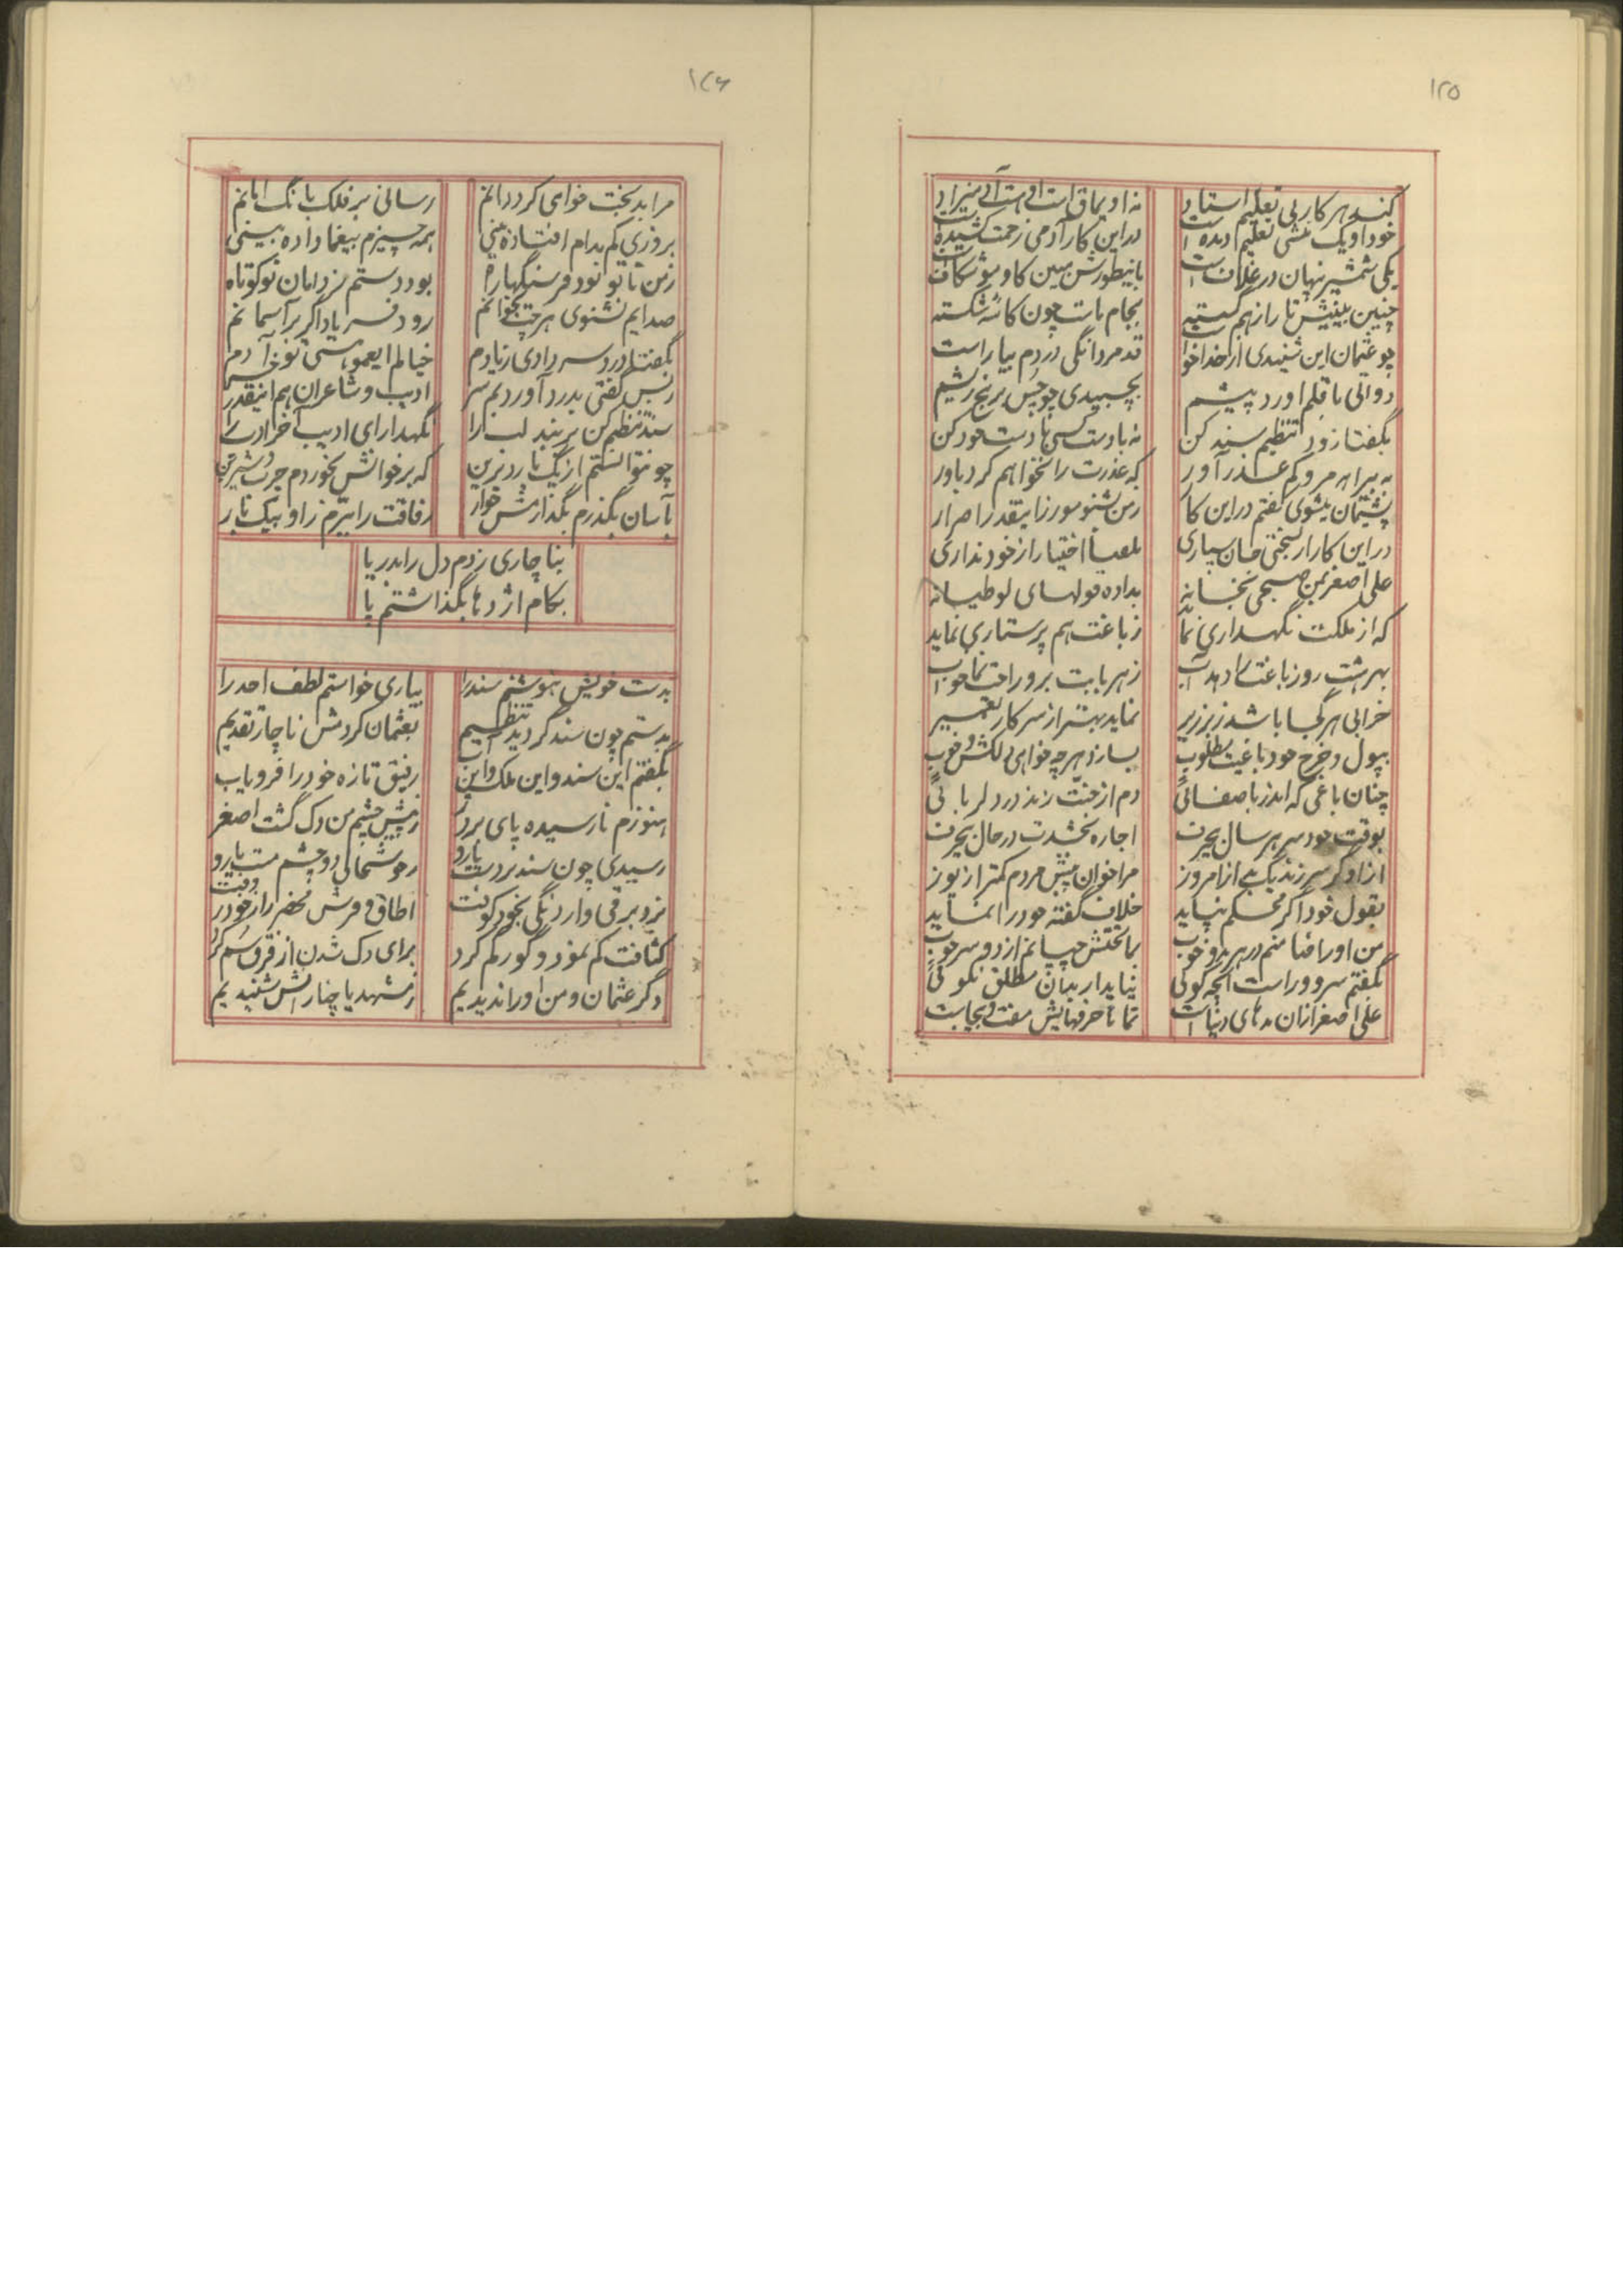 ۱۲۵
کند هر کار بی تعلیم استاد
نه او یماق است او هست آدمیزاد
خود او یک منشی تعلیم دیده است
در این کار آدمی زحمت کشیده است
یکی شمشیر پنهان در غلاف است
باینطورش مبین کاو موشکاف است
چنین بینیش تا راز هم گسسته
بجام مات چون کاسه شکسته
چو عثمان این شنیدی از خدا خواست
قد مردانگی در دم بیاراست
دواتی با قلم آورد پیشم
بچسبیدی چو چس بر نج ریشم
بگفتا زود تنظیم سند کن
نه با دست کسی با دست خود کن
به بیراهه مرو کم عذر آور
که عذرت را نخواهم کرد باور
پشیمان میشوی گفتم در این کار
ز من بشنو مورز اینقدر اصرار
در این کار ار بسختی جان سپاری
بلعیا اختیار از خود نداری
علی اصغر بمن صبحی بخانه
بداده قولهای لوطیانه
که از ملکت نگهداری نماید
ز باغت هم پرستاری نماید
بهر هشت روز باغت را دهد آب
ز هر بابت برو راحت نما خواب
خرابی هر کجا باشد ز بر زیر
نماید بهتر از سر کار تعمیر
بپول و خرج خود باغیت مطلوب
بسازد هر چه خواهی دلکش و خوب
چنان باغی که اندر باصفائی
دم از جنت زند در دلربائی
بوقت خود سر هر سال بی حرف
اجاره بخشدت در حال بی حرف
از او گر سر زند یک بی از امروز
مرا خوان پیش مردم کمتر از یوز
بقول خود اگر محکم نپاید
خلاف گفته خود را نماید
من او را ضامنم در هر بد و خوب
بماتحتش چپانم از دو سر چوب
بگفتم سر و راست آنچه گوئی
نیاید در بیان مطلق نکوئی
علی اصغر از آن مدهای دنیاست
تماما حرفهایش مفت و بیجاست
۱۲۶
مرا بدبخت خواهی کرد دانم
رسانی بر فلک بانگ امانم
بروزی کم بدام افتاده بینی
همه چیزم بیغما داده بینی
ز من تا تو نود فرسنگها راه
بود دستم ز دامان تو کوتاه
صدایم نشنوی هر چت بخوانم
رود فریاد اگر بر آسمانم
بگفتا درد سر دادی زیادم
خیالم ایعمو مستی تو خر آدم
ز بس گفتی بدرد آوردیم سر
ادیب و شاعران هم اینقدر خر
سند تنظیم کن بر بند لب را
نگهدار ای ادیب آخر ادب را
چو نتوانستم از یک یار دیرین
که بر خوانش بخوردم چرب و شیرین
بآسان بگذرم بگذارمش خوار
رفاقت را ببرم ز او بیکبار
بناچاری زدم دل را بدریا
بکام اژدها بگذاشتم پا
بدست خویش بنوشتم سند را
بیاری خواستم لطف احد را
بدستم چون سند گردید تنظیم
بعثمان کردمش ناچار تقدیم
بگفتم این سند و این ملک و این باب
رفیق تازه خود را فرو یاب
هنوزم نارسیده پای بر در
ز پیش چشم من دک گشت اصغر
رسیدی چون سند بر دست یارو
ز خوشحالی دو چشم مست یارو
بزد برقی و اردنگی بخود کوفت
اطاق و فرش محضر را ز خود روفت
کثافت کم نمود و گور گم کرد
برای دک شدن از فرق سم کرد
دگر عثمان و من او را ندیدیم
ز مشهد یا چنارانش شنیدیم